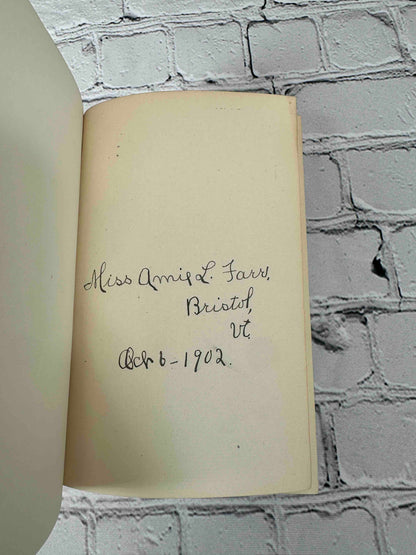 Miss Amie L. Farr,
Bristol,
Vt.
Oct 6 - 1902.